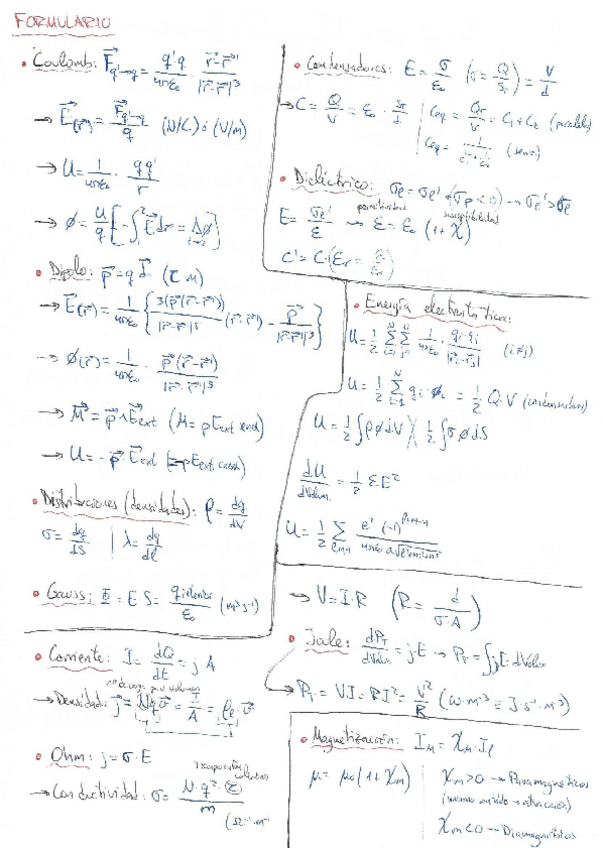 FORMULARIO
• Coulomb: F⃗q'→q = q'·q / 4πε₀ · r⃗-r⃗' / |r⃗-r⃗'|³
→ E⃗(r⃗) = F⃗q'→q / q (N/C) ó (V/m)
→ U = 1/4πε₀ · qq'/r
→ ϕ = U/q [-∫₁² E⃗dr⃗ = Δϕ 1→2]
• Dipolo: p⃗ = q d⃗ (C m)
→ E⃗(r⃗) = 1/4πε₀ { 3(p⃗(r⃗-r⃗')) / |r⃗-r⃗'|⁵ (r⃗-r⃗') - p⃗ / |r⃗-r⃗'|³ }
→ ϕ(r⃗) = 1/4πε₀ · p⃗(r⃗-r⃗') / |r⃗-r⃗'|³
→ M⃗ = p⃗ ∧ E⃗ext (M = pEext senα)
→ U = -p⃗·E⃗ext (=-pEext cosα)
• Distribuciones (densidades): ρ = dq/dV
σ = dq/dS | λ = dq/dl
• Gauss: Φ = E·S = /ε₀
• Corriente: I = dQ/dt = j·A
nº de cargas por volumen
→ Densidad: j⃗ = Nqv⃗ = I/A = ·v⃗
• Ohm: j = σ·E
→ Conductividad: σ = N·q²· / m (Ω⁻¹·m⁻¹
• Condensadores: E = σ/ε₀ (σ = Q/S) = V/d
→ C = Q/V = ε₀ · S/d | Ceq = /V = C₁+C₂ (paralelo)
Ceq = (serie)
• Dieléctrico:
permitividad susceptibilidad
E = /ε → ε = ε₀ (1+χ)
C' = C·(εr = ε/ε₀)
• Energía electrostática:
U = 1/2 ΣΣ 1/4πε₀ · qᵢ·qⱼ / |r⃗ᵢ-r⃗ⱼ| (i≠j)
U = 1/2 Σ qᵢ·ϕᵢ = 1/2 Q·V (condensadores)
U = 1/2 ∫ρϕdV 1/2 ∫σϕdS
dU/dValum. = 1/2 εE²
U = 1/2 Σ
→ V = I·R (R = d/σ·A)
• Joule: dPT/dVolum = j·E → PT = ∫jE·dVolum
→ PT = VI = RI² = V²/R (W·m⁻³ = J·s⁻¹·m⁻³)
• Magnetización: Im = χm·Il
μ = μ₀(1+χm) | χm>0 → Paramagnéticos
(mismo sentido → atracción)
χm<0 → Diamagnéticos